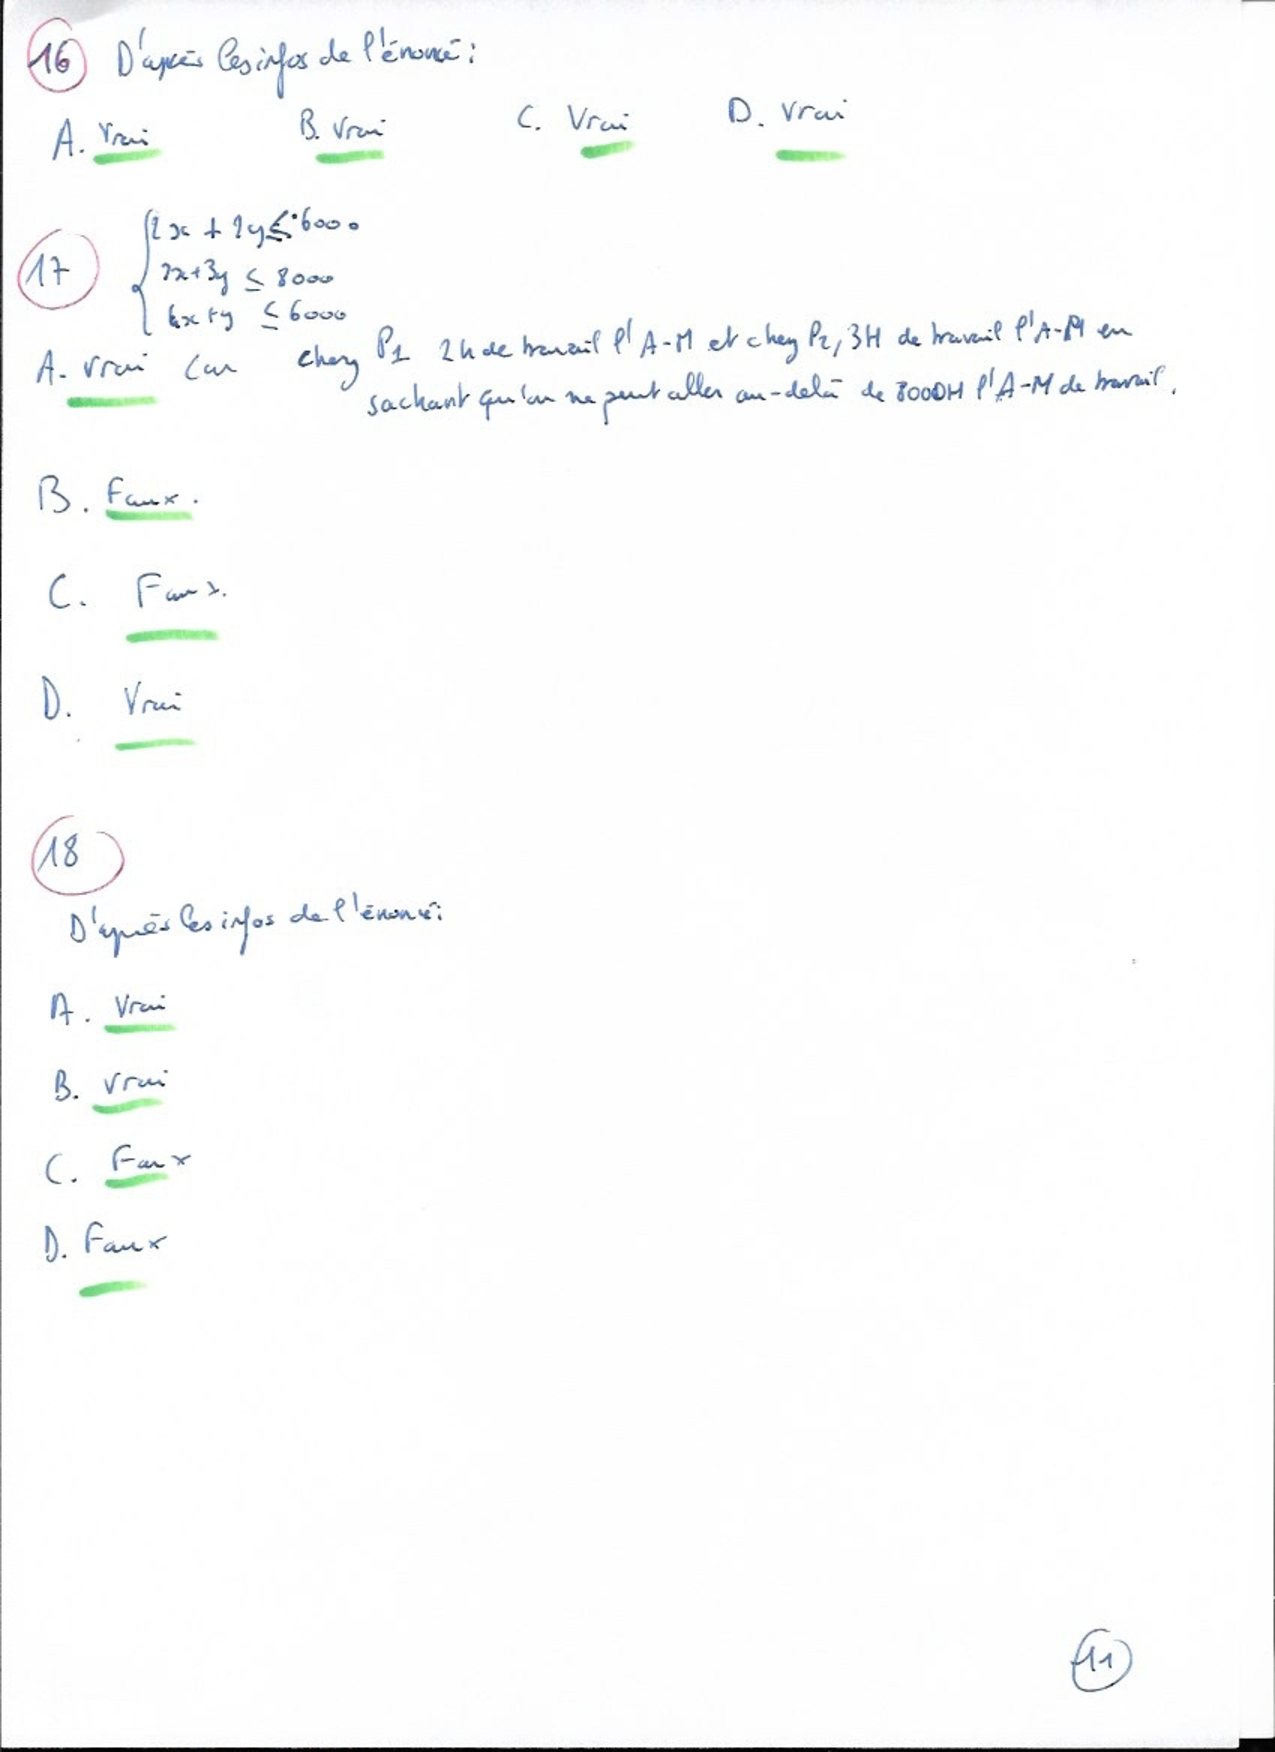 16 D'après les infos de l'énoncé :
A. Vrai B. Vrai C. Vrai D. Vrai
17
2x + 2y ≤ 6000
2x+3y ≤ 8000
6x+y ≤ 6000
A. vrai car chez P1 2h de travail l'A-M et chez P2, 3H de travail l'A-M en
sachant qu'on ne peut aller au-delà de 8000H l'A-M de travail.
B. Faux.
C. Faux.
D. Vrai
18
D'après les infos de l'énoncé :
A. Vrai
B. Vrai
C. Faux
D. Faux
11